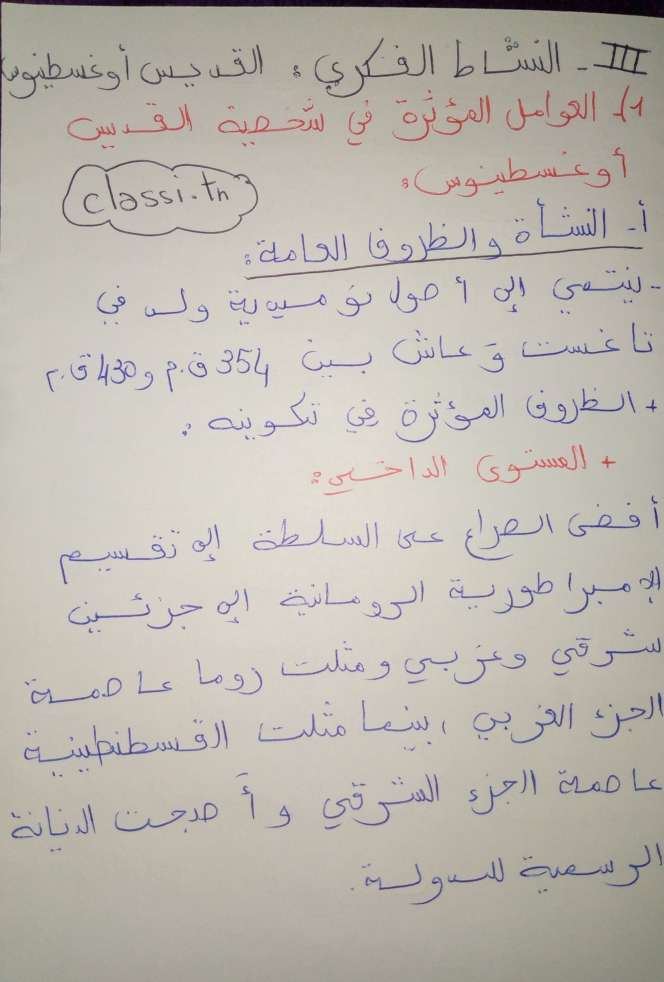 III - النشاط الفكري : القديس أوغسطينوس
1)- العوامل المؤثرة في شخصية القديس
أوغسطينوس :
classi.tn
أ- النشأة والظروف العامة :
- ينتمي إلى أصول نوميدية ولد في
تاغست وَعاش بين 354 ق.م و 430 ق.م
+ الظروف المؤثرة في تكوينه :
+ المستوى الداخلي :
أفضى الصراع على السلطة إلى تقسيم
الإمبراطورية الرومانية إلى جزئين
شرقي وغربي ومثلت روما عاصمة
الجزء الغربي ، بينما مثلت القسطنطينية
عاصمة الجزء الشرقي وأصبحت الديانة
الرسمية للدولة .